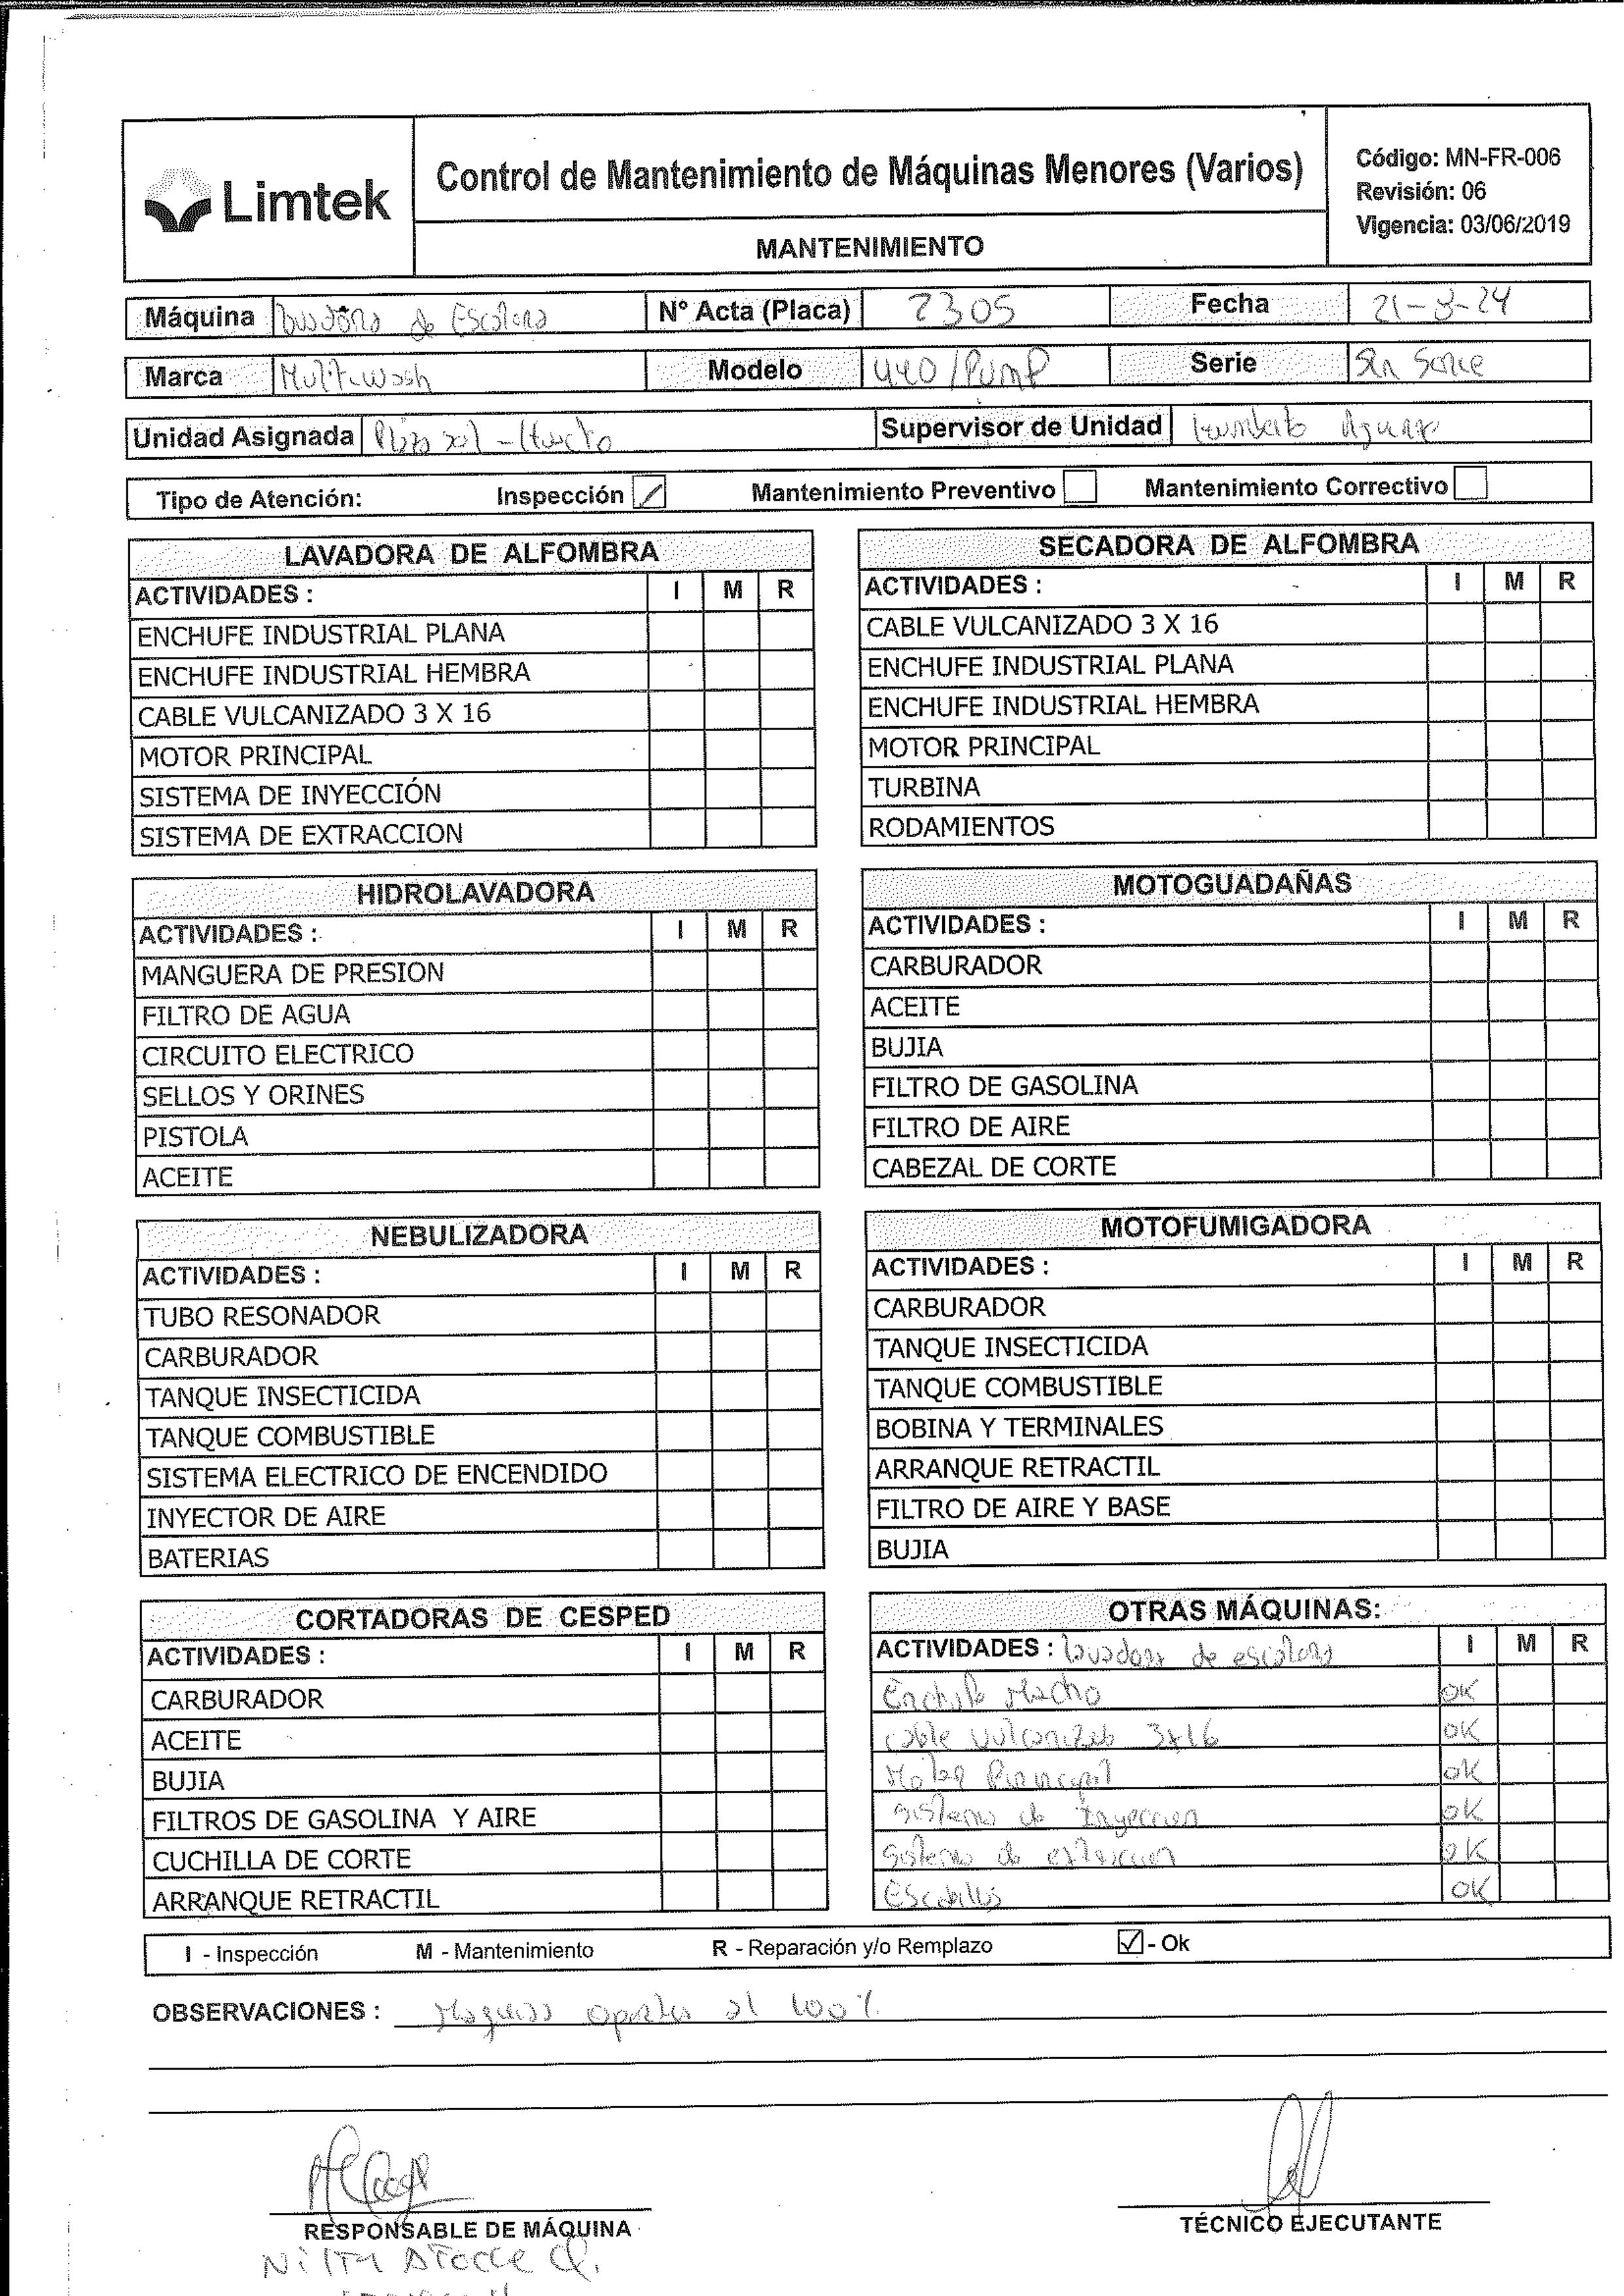 Limtek
Control de Mantenimiento de Máquinas Menores (Varios)
MANTENIMIENTO
Código: MN-FR-006
Revisión: 06
Vigencia: 03/06/2019
Máquina de Escalera N° Acta (Placa) 2305 Fecha 21-8-24
Marca Multi-Wash Modelo 440/PUMP Serie Sin Serie
Unidad Asignada Plaza sol - Supervisor de Unidad
Tipo de Atención: Inspección Mantenimiento Preventivo Mantenimiento Correctivo
LAVADORA DE ALFOMBRA
ACTIVIDADES : I M R
ENCHUFE INDUSTRIAL PLANA
ENCHUFE INDUSTRIAL HEMBRA
CABLE VULCANIZADO 3 X 16
MOTOR PRINCIPAL
SISTEMA DE INYECCIÓN
SISTEMA DE EXTRACCION
SECADORA DE ALFOMBRA
ACTIVIDADES : I M R
CABLE VULCANIZADO 3 X 16
ENCHUFE INDUSTRIAL PLANA
ENCHUFE INDUSTRIAL HEMBRA
MOTOR PRINCIPAL
TURBINA
RODAMIENTOS
HIDROLAVADORA
ACTIVIDADES : I M R
MANGUERA DE PRESION
FILTRO DE AGUA
CIRCUITO ELECTRICO
SELLOS Y ORINES
PISTOLA
ACEITE
MOTOGUADAÑAS
ACTIVIDADES : I M R
CARBURADOR
ACEITE
BUJIA
FILTRO DE GASOLINA
FILTRO DE AIRE
CABEZAL DE CORTE
NEBULIZADORA
ACTIVIDADES : I M R
TUBO RESONADOR
CARBURADOR
TANQUE INSECTICIDA
TANQUE COMBUSTIBLE
SISTEMA ELECTRICO DE ENCENDIDO
INYECTOR DE AIRE
BATERIAS
MOTOFUMIGADORA
ACTIVIDADES : I M R
CARBURADOR
TANQUE INSECTICIDA
TANQUE COMBUSTIBLE
BOBINA Y TERMINALES
ARRANQUE RETRACTIL
FILTRO DE AIRE Y BASE
BUJIA
CORTADORAS DE CESPED
ACTIVIDADES : I M R
CARBURADOR
ACEITE
BUJIA
FILTROS DE GASOLINA Y AIRE
CUCHILLA DE CORTE
ARRANQUE RETRACTIL
OTRAS MÁQUINAS:
ACTIVIDADES : lavadora de escalera I M R
Enchufe Macho OK
cable vulcanizado 3x16 OK
Motor Principal OK
sistema de Inyeccion OK
sistema de extraccion OK
Escobillas OK
I - Inspección M - Mantenimiento R - Reparación y/o Remplazo ☑ - Ok
OBSERVACIONES : al 100%
RESPONSABLE DE MÁQUINA
TÉCNICO EJECUTANTE